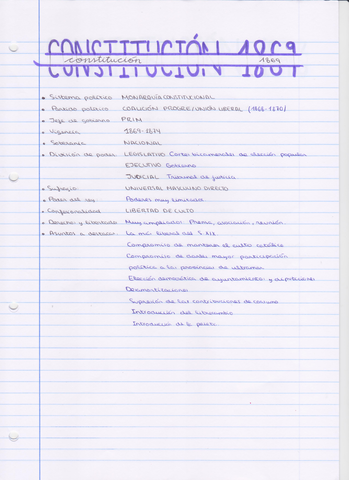 CONSTITUCIÓN 1869
constitución 1869
• Sistema político MONARQUÍA CONSTITUCIONAL
• Partido político COALICIÓN PROGRE/UNIÓN LIBERAL (1868-1870)
• Jefe de gobierno PRIM
• Vigencia 1869-1874
• Soberanía NACIONAL
• División de poder LEGISLATIVO Cortes bicamerales de elección popular
EJECUTIVO Gobierno
JUDICIAL Tribunal de justicia
• Sufragio UNIVERSAL MASCULINO DIRECTO
• Poder del rey Poderes muy limitados
• Confesionalidad LIBERTAD DE CULTO
• Derechos y libertades Muy ampliados: Prensa, asociación, reunión
• Asuntos a destacar La más liberal del S.XIX
Compromiso de mantener el culto católico
Compromiso de dar mayor participación
política a las provincias de ultramar.
Elección democrática de ayuntamientos y diputaciones
Supresión de las contribuciones de consumo
Introducción del
Introducción de la peseta